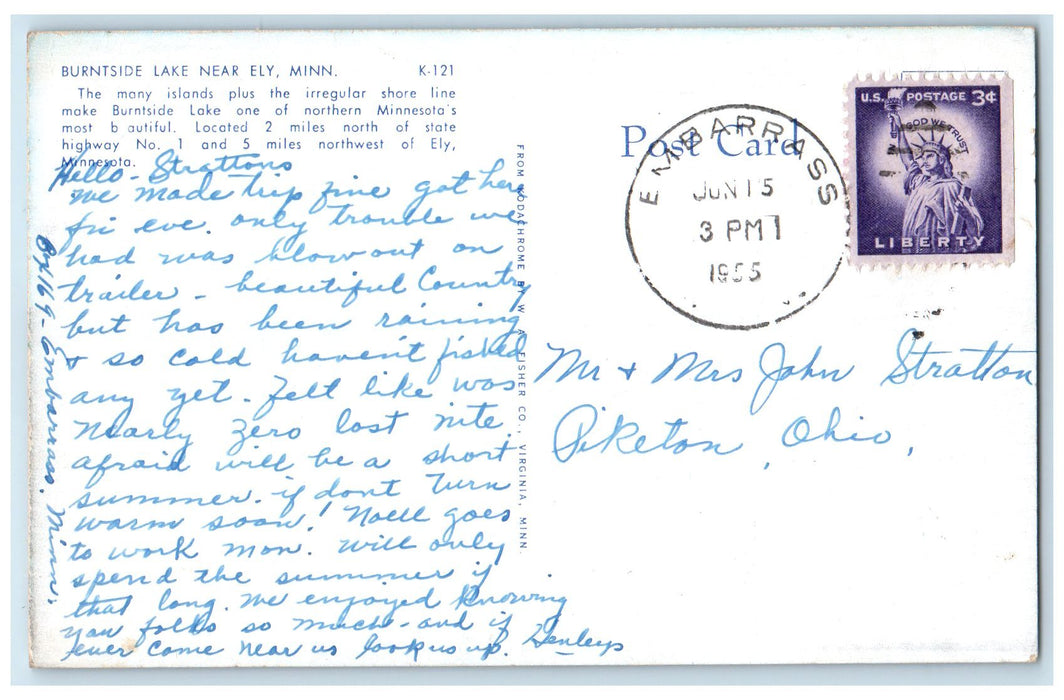 BURNTSIDE LAKE NEAR ELY, MINN. K-121
The many islands plus the irregular shore line
make Burntside Lake one of northern Minnesota's
most b autiful. Located 2 miles north of state
highway No. 1 and 5 miles northwest of Ely,
Minnesota.
Hello - Strattons
we made trip fine got here
fri eve. only trouble we
had was blow out on
trailer - beautiful Country
but has been raining
& so cold haven't fished
any yet. Felt like was
nearly zero last nite.
afraid will be a short
summer. if dont turn
warm soon! Noell goes
to work mon. will only
spend the summer if
that long. We enjoyed knowing
you folks so much - and if
ever come near us look us up. Henleys
Bx 169 - Embarrass, Minn.
FROM KODACHROME BY W. A. FISHER CO., VIRGINIA, MINN.
Post Card
EMBARRASS
JUN 15
3 PM
1955
U.S. POSTAGE 3¢
IN GOD WE TRUST
LIBERTY
Mr + Mrs John Stratton
Piketon, Ohio,